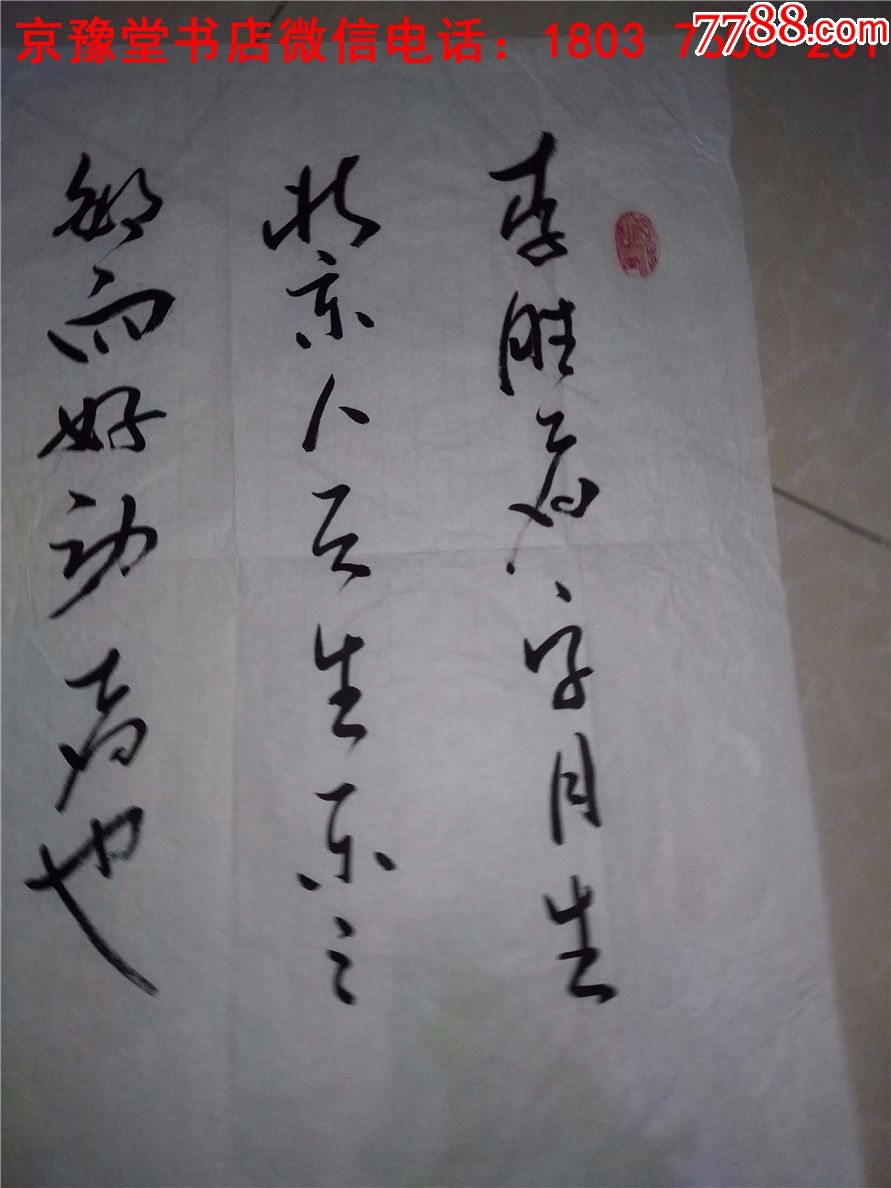 京豫堂书店微信电话：1803 7
7788.com
李胜春字月生
北京人 生东
而好动者也